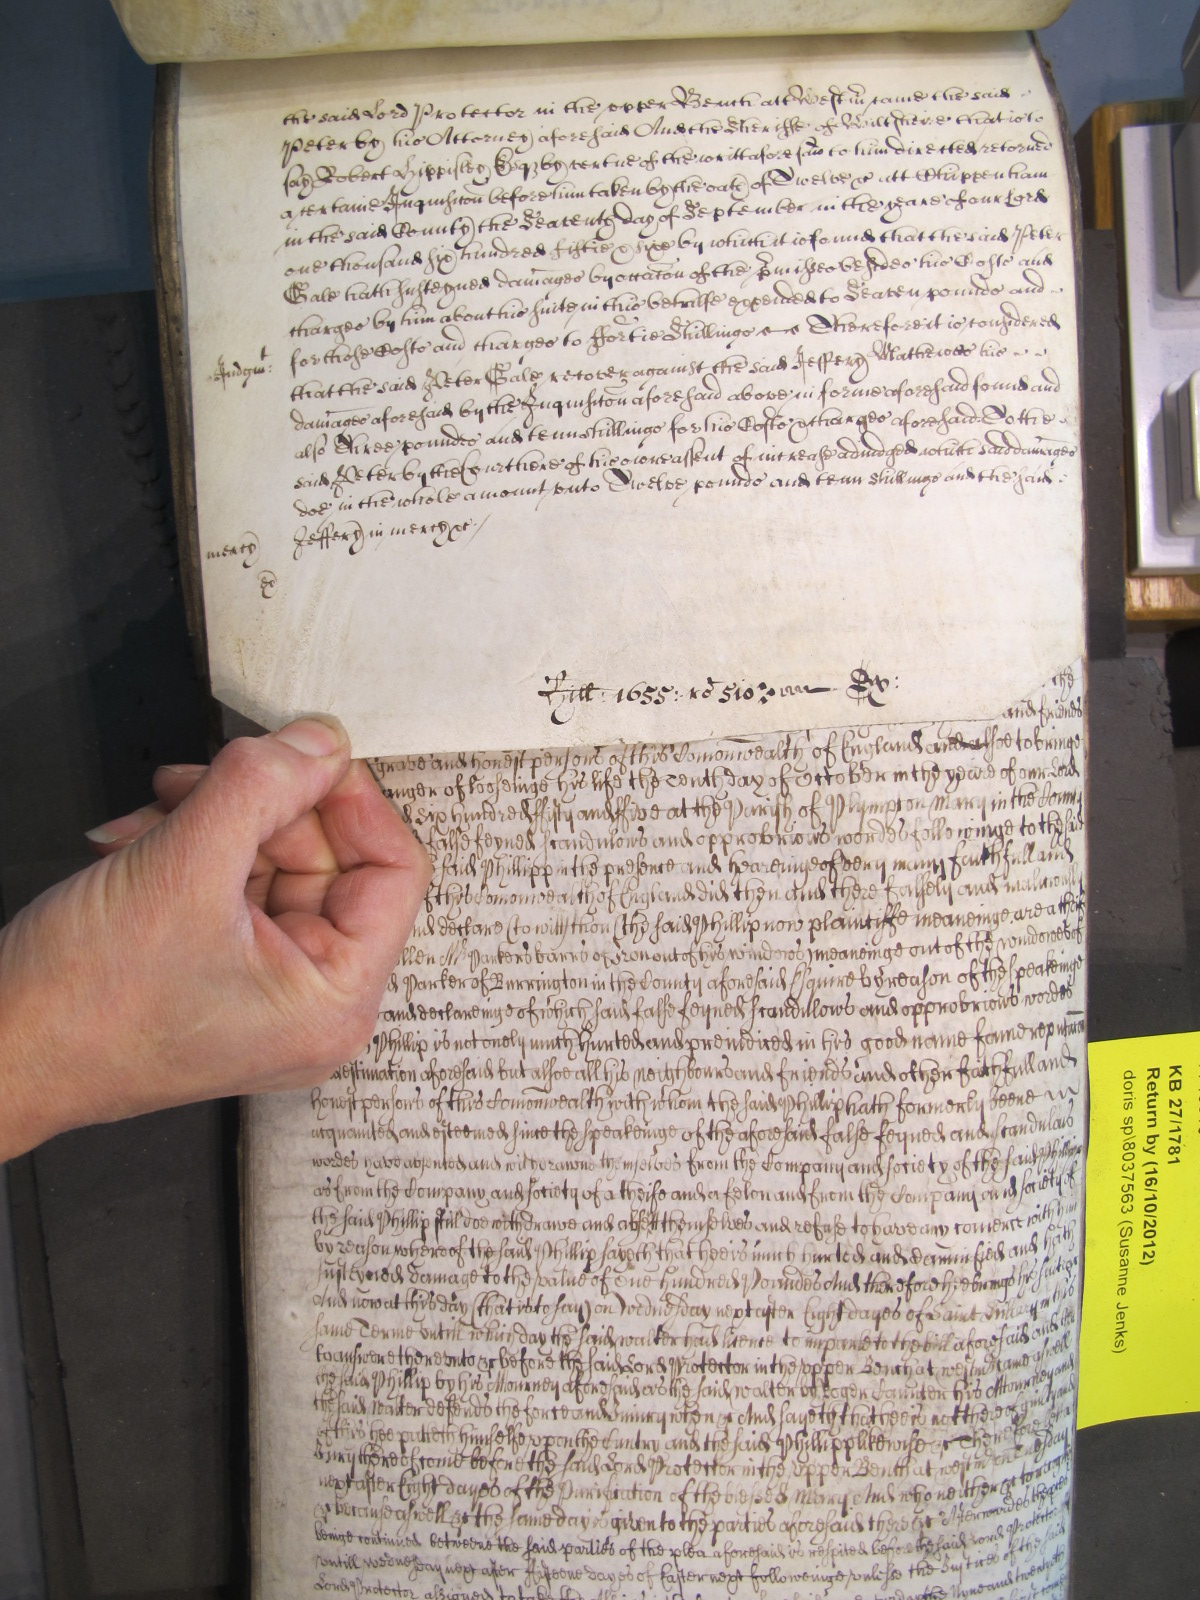 the said Lord Protector in the upper Bench att Westm came the said
Peter by his Attorney aforesaid And the Sheriffe of Wiltsheire that is to
say Robert Hippisley Esqr by vertue of the writt aforesaid to him directed retorned
a certaine Inquisicon before him taken by the oath of Twelve &c att
in the said County the Seaventh day of September in the yeare of our Lord
one thousand six hundred fiftie & sixe by which it is found that the said Peter
Gale hath susteyned damages by occacon of the p'misses besides his Costs and
charges by him about his suite in this behalfe expended to Seaven pounds and
for those Costs and charges to ffortie Shillings Therefore it is considered
Judgmt:
that the said Peter Gale recover against the said Jeffery Mathewes his
damages aforesaid by the Inquisicon aforesaid above in forme aforesaid found and
also Three pounds and tenn shillings for his Costs & charges aforesaid to the
said Peter by the Court here of his owne assent of increase adiudged which said damages
doe in the whole amount unto Twelve pounds and tenn shillings and the said
Jeffery in mercy &c
mercy
&c
Hill: 1655: ro 510 Ex:
the
and friends
grave and honest persons of this Comonwealth of England and alsoe to bringe
anger of looseinge his life the Tenth day of October in the yeare of our Lord
Six hundred ffifty and ffive at the Parish of Plympton Mary in the County
false feyned scandulows and opprobriows wordes followinge to the said
said Phillipp in the presence and heareinge of very many faithfull and
f this Comonwealth of England did then and there falsely and maliciously
nd declare (to witt) thou (the said Phillip now plaintiffe meaneinge) are a theife
ollen Mr Parkers barrs of Iron out of his windows meaneinge out of the windowes of
Parker of Burrington in the County aforesaid Esquire by reason of the speakeinge
and declareinge of which said false feyned scandulows and opprobriows wordes
Phillip is not onely much hurted and preiudiced in his good name fame reputacon
estimation aforesaid but alsoe all his neighbours and friends and other faithfull and
honest persons of this Comonwealth with whom the said Phillip hath formerly beene
acquainted and esteemed since the speakeinge of the aforesaid false feyned and scandulows
wordes have absented and withdrawne themselves from the Company and society of the said Phillip
as from the Company and society of a theife and a felon and from the Company and society of
the said Phillip still doe withdrawe and absent themselves and refuse to have any comerce with him
by reason whereof the said Phillip sayeth that hee is much hurted and damnified and hath
susteyned damage to the value of One Hundred Poundes And therefore hee brings his suite &c
And now at this day (that is to say) on Wednesday next after Eight dayes of Saint Hillary in this
same Terme untill which day the said Walter had licence to imparle to the bill aforesaid and
to answere thereunto &c before the said Lord Protector in the upper Bench at Westm came aswell
the said Phillip by his Attourney aforesaid as the said Walter by Roger his Attourney and
the said Walter defends the force and Iniury when &c And sayeth that hee is not thereof guilty and
of this hee putteth himselfe upon the Cuntry and the said Phillipp likewise &c Therefore lett a
Iury thereof come before the said Lord Protector in the upper Bench at Westm on Wednesday
next after Eight dayes of the Purification of the blessed Mary And who neither &c to recognize
&c because aswell &c the same day is given to the parties aforesaid there &c Afterwardes the proces
beinge continued betweene the said parties of the plea aforesaid is respited before the said Lord Protector
untill Wednesday next after fifteene dayes of Easter next followeinge unlesse the Iustices of the said
Lord Protector assigned to take
KB 27/1781
Return by (16/10/2012)
doris sp\8037563 (Susanne Jenks)